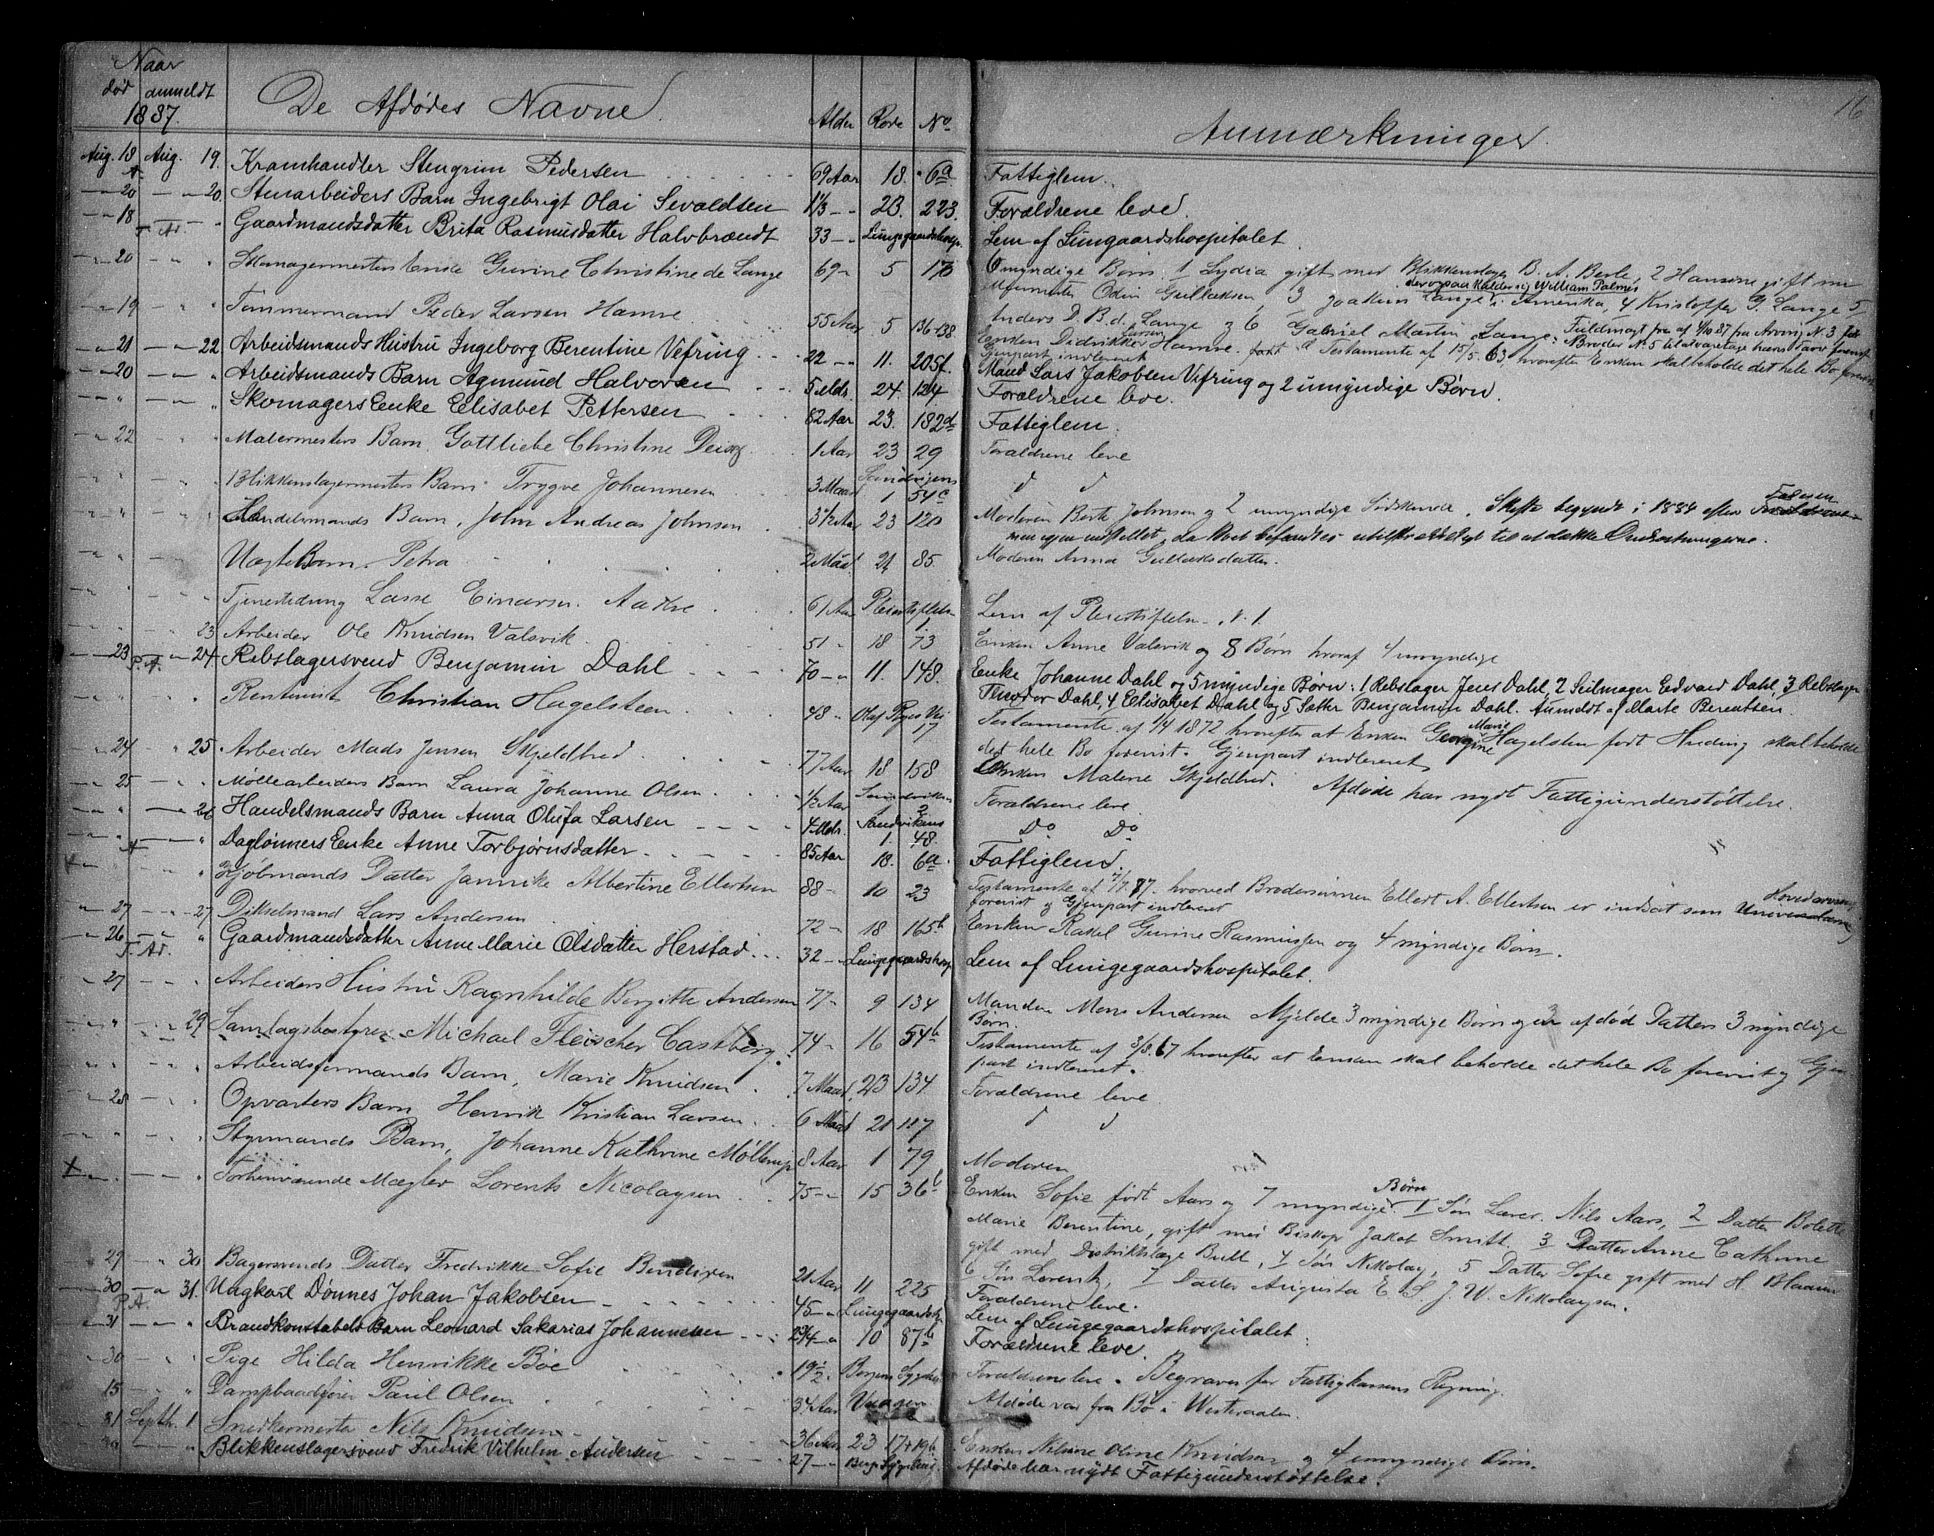 Naar
død anmeldt
1887.
De Afdødes Navne.
Alder Rode No
Anmærkninger.
16
Aug. 18 Aug. 19. Kramhandler Stengrim Pedersen 69 Aar 18. 6a Fattiglem.
20 20. Stenarbeiders Barn Ingebrigt Olai Sevaldsen 1 1/3 23. 223. Forældrene leve.
18 Gaardmandsdatter Brita Rasmusdatter Halvbrændt 33 Lungegaardshosp. Lem af Lungaardshospitalet.
20 Enke Gurine Christine de Lange 69 5 17b Omyndige Børn. 1 Lydia gift med Blikkenslager B. A. Berle, 2 Hansine gift m
derogsaa kalder sig William Palmes
Odin Gullaksen, 3 Joakim Lange i Amerika, 4 Kristoffer G. Lange 5
Anders D. B. d. Lange og 6 Gabriel Martin Lange. Fuldmagt fra af 4/10 87 fra Arving N. 3 for
Broder No 5 til at varetage hans Tarv
19 Tømmermand Peder Larsen Hamre 55 Aar 5 136-138 Enken Didrikke Hamre født Larsen Testamente af 15/5 63, hvorefter Enken skal beholde det hele Bo forevist
Gjenpart indleveret
21 22. Arbeidsmands Hustru Ingeborg Berentine Vefring 22 11. 205f. Mand Lars Jakobsen Vefring og 2 umyndige Børn.
20 Arbeidsmands Barn Agmund Halvorsen 5 Mdr. 24. 124. Forældrene leve.
Skomagers Enke Elisabet Pettersen 82 Aar 23. 182d Fattiglem.
22 Malermesters Barn Gottliebe Christine 1 Aar 23 29 Forældrene leve
Blikkenslagermesters Barn Trygve Johannesen 3 Maad Sandvigens 1 54c d d
Handelsmands Barn, John Andreas Johnsen 3 1/2 Aar 23 120 Moderen Berte Johnson og 2 umyndige Sødskende. Skifte begyndt i 1884 efter Faderen
men igjen indstillet, da Boet befandtes utilstrækkeligt til at dække Omkostningerne.
Uægte Barn Petra 2 Maad 21 85. Moderen Anna Gullaksdatter.
Tjenestedreng Lasse Einarsen Aadne 61 Aar Pleiestiftelsen 1 Lem af Pleiestiftelsen N. 1.
23 Arbeider Ole Knudsen Valsvik 51 18 73 Enken Anne Valsvik og 8 Børn hvoraf 4 umyndige
23 P.A. 24 Rebslagersvend Benjamin Dahl 70 11. 148. Enke Johanne Dahl og 5 myndige Børn: 1 Rebslager Jens Dahl, 2 Seilmager Edvard Dahl, 3 Rebslager
Theodor Dahl, 4 Elisabet Dahl og 5 Søtter Benjamin Dahl. Anmeldt af Marte Berentsen.
Rentenist Christian Hagelsteen 48 Olaf Ryes Vei 17 Testamente af 1/4 1872 hvorefter at Enken Georgine Marie Hagelsten født Huding skal beholde
det hele Bo forevist. Gjenpart indleveret
24 25 Arbeider Mads Jensen Skjeldbred 77 Aar 18 158 Enken Malene Skjeldbred. Afdøde har nydt Fattigunderstøttelse.
25 Møllearbeiders Barn Laura Johanne Olsen 1/2 Aar Sandviken 2 Forældrene leve
26 Handelsmands Barn Anna Olufa Larsen 4 Mdr. Sandvikens 1. 48. Do Do
Daglønners Enke Anne Torbjørnsdatter 85 Aar 18. 6a. Fattiglem.
Kjøbmands Datter Jannike Albertine Ellertsen 88 10 23 Testamente af 7/7 87. hvorved Brodersønnen Ellert A. Ellertsen er indsat som Universalarving Hovedarving
forevist og Gjenpart indleveret
27 27 Dikselmand Lars Andersen 72 18 165b Enken Rakel Gurine Rasmussen og 4 myndige Børn.
26 Gaardmandsdatter Anne Marie Olsdatter Herstad 32 Lungegaardshosp Lem af Lungegaardshospitalet.
27 Arbeiders Hustru Ragnhilde Birgitte Andersen 77 9 134 Manden Mons Andersen Mjelde 3 myndige Børn og en afdød Datters 3 myndige
Børn.
29 Samlagsbestyrer Michael Fleischer Castberg 74 16 54b Testamente af 3/8 67 hvorefter at Enken skal beholde det hele Bo forevist og Gjen
part indleveret.
Arbeidsformands Barn, Marie Knudsen 7 Maad. 23 134 Forældrene leve
28 Opvarters Barn Henrik Kristian Larsen 6 Maad 21 117 d d
Styrmands Barn, Johanne Kathrine Møllerup 8 Aar 1 79 Moderen
Forhenværende Mægler Lorents Nicolaysen 75 15 36b Enken Sofie født Aars og 7 myndige Børn 1 Søn Lærer Nils Aars, 2 Datter Bolette
Marie Berentine, gift med Biskop Jakob Smitt, 3 Datter Anne Cathrine
gift med Distriktslæge Bull, 4 Søn Nikolay, 5 Datter Sofie gift med H. Blaauw
6 Søn Lorents, 7 Datter Augusta E S J W Nikolaysen.
29 30 Bagersvends Datter Fredrikke Sofie Bendixen 21 Aar 11 225 Forældrene leve.
30 P.A. 31. Ungkarl Dønnes Johan Jakobsen 45 Lungegaardsh. Lem af Lungegaardshospitalet.
31 Brandkonstabels Barn Leonard Sakarias Johannesen 2 3/4 10 87b Forældrene leve.
30 Pige Hilda Henrikke Bøe 19 1/2 Bergens Sygehus Forældrene leve. Begraves for Fattigkassens Regning.
15 Dampbaadfører Paul Olsen 34 Aar Vaagen Afdøde var fra Bø i Westeraalen.
31 Septbr. 1 Snedkermester Nils Knudsen 36 Aar 23 17+19b Enken Nilsine Oline Knudsen og 4 umyndige Børn.
Blikkenslagersvend Fredrik Vilhelm Andersen 27 Berg. Sygehus Afdøde har nydt Fattigunderstøttelse.